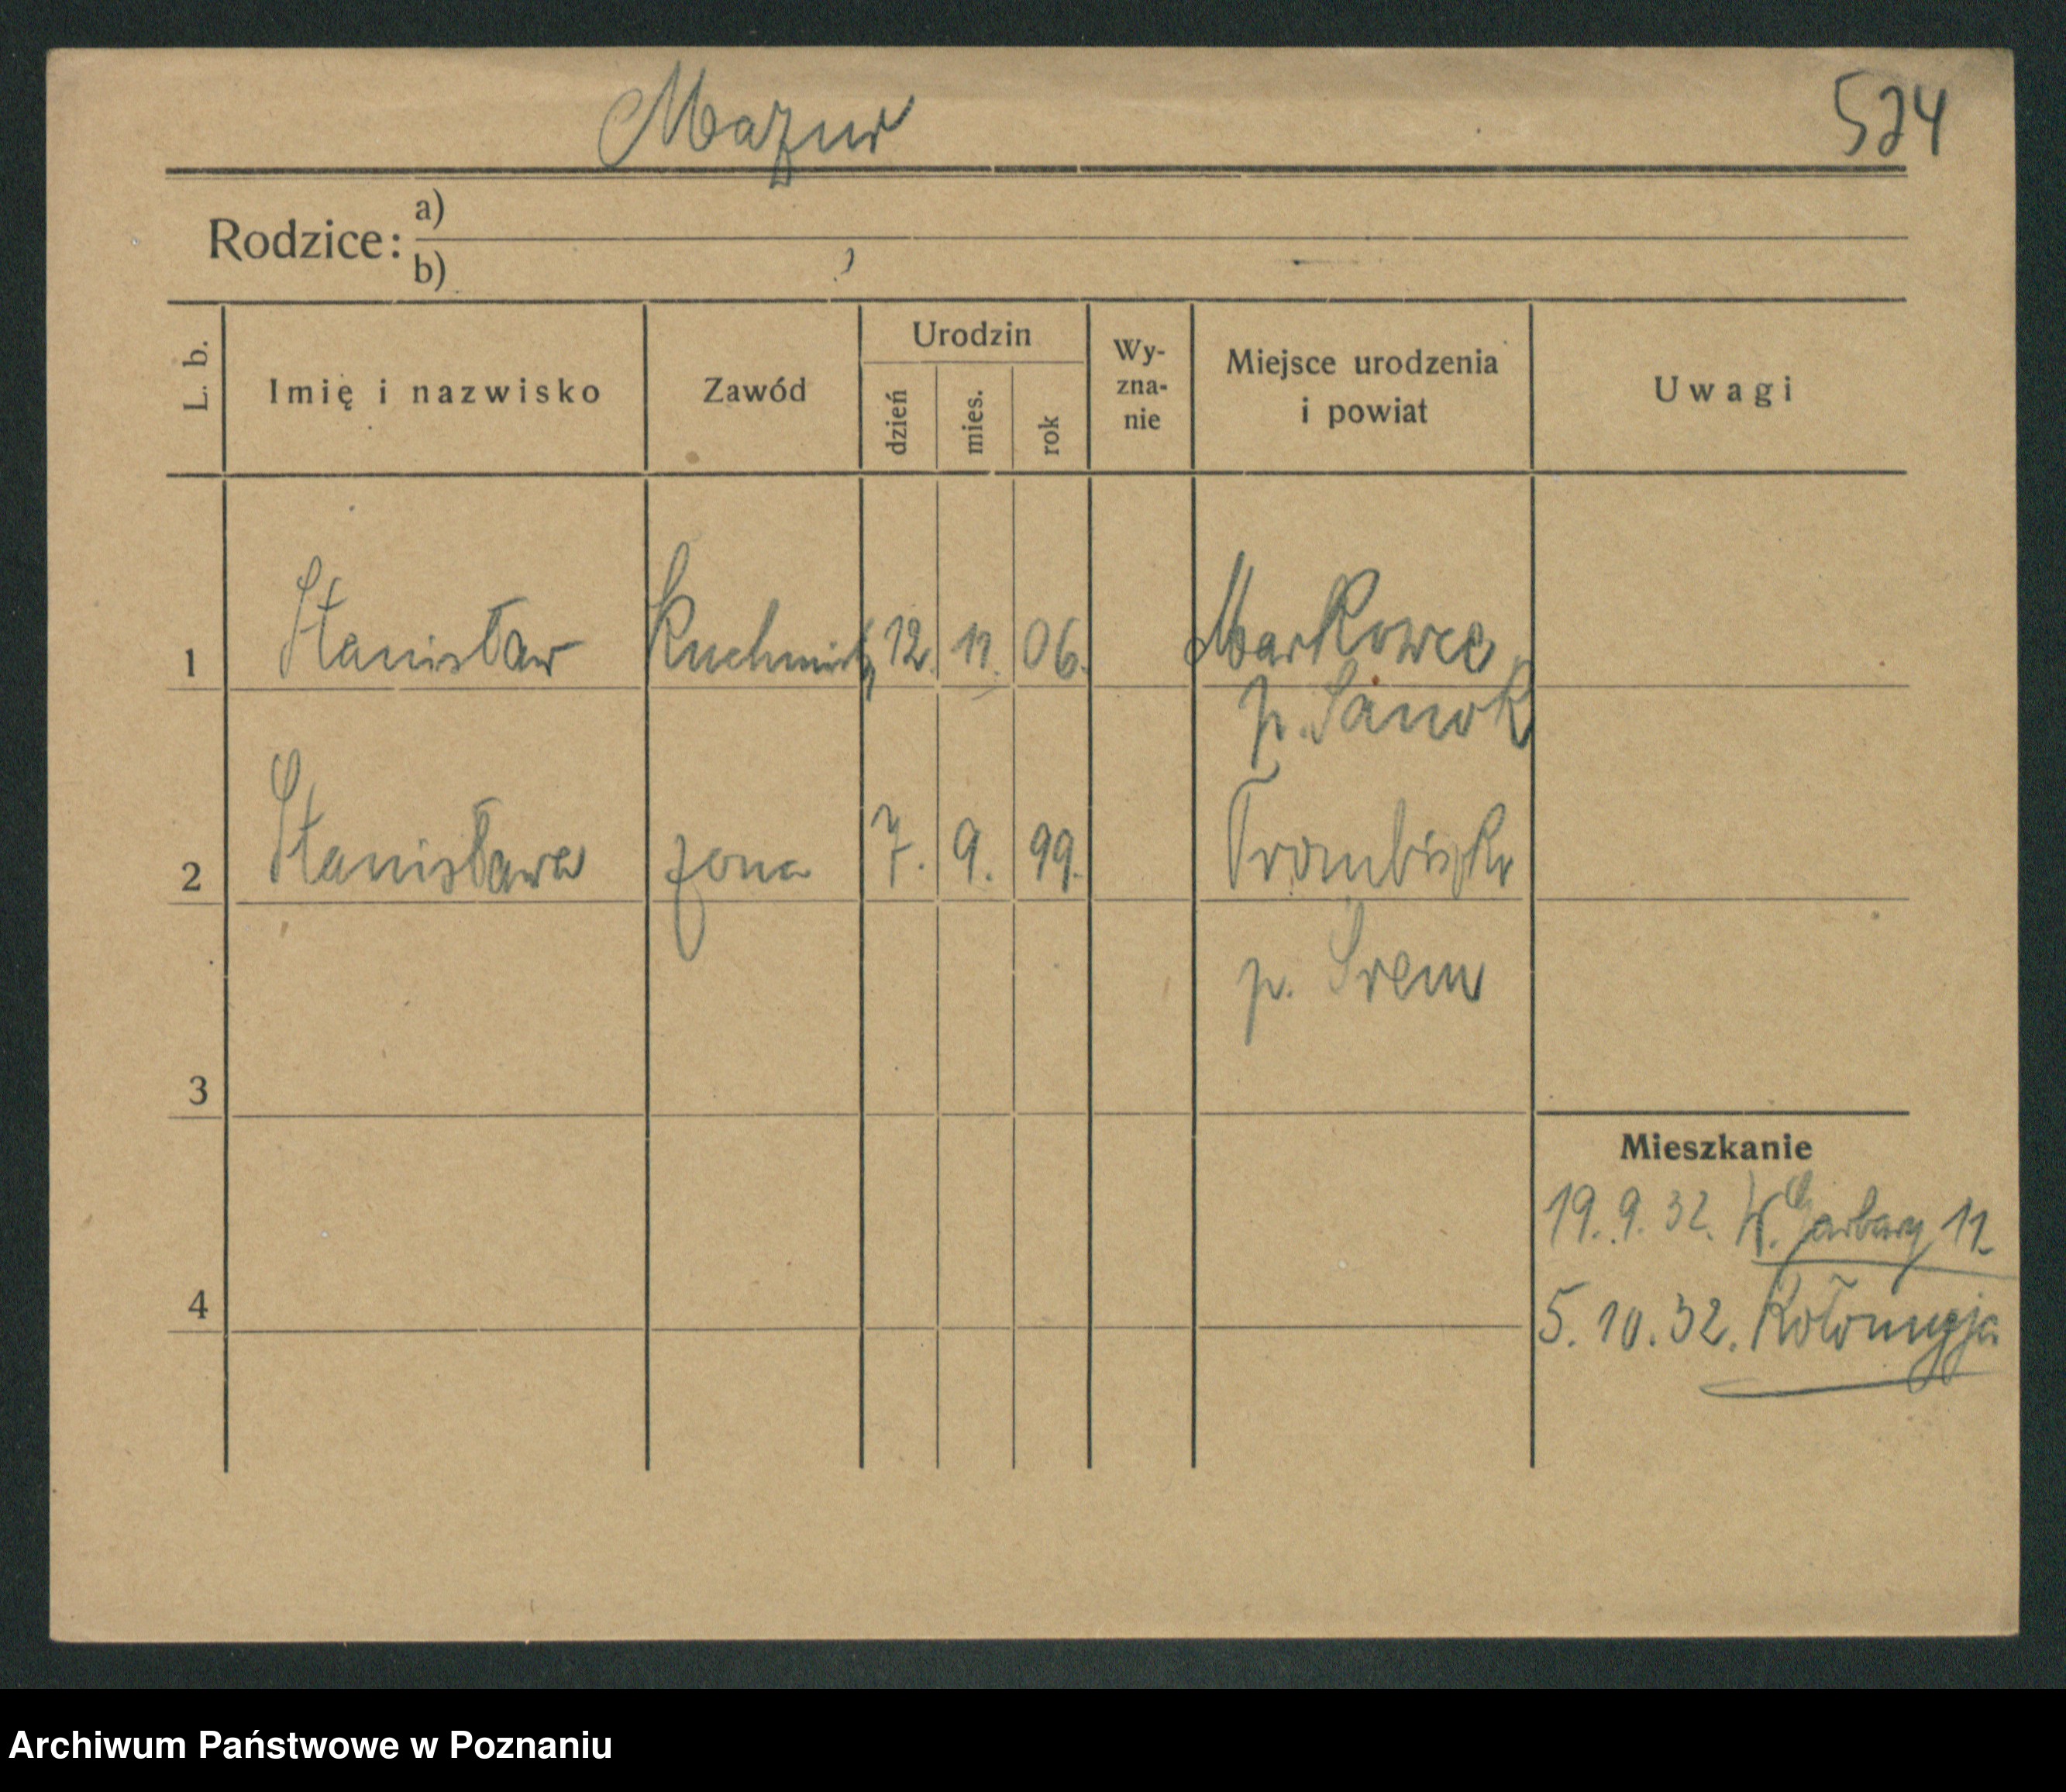 Mazur
524
Rodzice: a)
b)
L. b.
Imię i nazwisko
Zawód
Urodzin
dzień
mies.
rok
Wy-
zna-
nie
Miejsce urodzenia
i powiat
Uwagi
1 Stanisław Kuchmistrz 12. 11. 06. Markowce
p. Sanok
2 Stanisława żona 7. 9. 99.
p. Śrem
3
Mieszkanie
19. 9. 32. W. Garbary 11.
4
5. 10. 32. Kołomyja
Archiwum Państwowe w Poznaniu